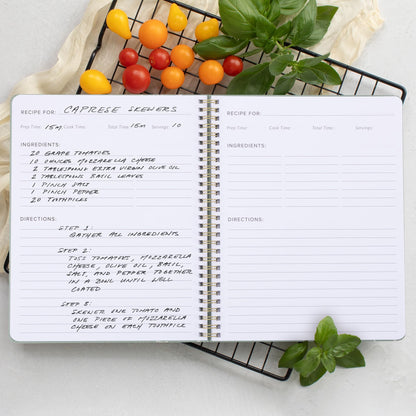 RECIPE FOR: CAPRESE SKEWERS
Prep Time: 15m Cook Time: Total Time: 15m Servings: 10
INGREDIENTS:
20 GRAPE TOMATOES
10 OUNCES MOZZARELLA CHEESE
2 TABLESPOONS EXTRA VIRGIN OLIVE OIL
2 TABLESPOONS BASIL LEAVES
1 PINCH SALT
1 PINCH PEPPER
20 TOOTHPICKS
DIRECTIONS:
STEP 1:
GATHER ALL INGREDIENTS
STEP 2:
TOSS TOMATOES, MOZZARELLA
CHEESE, OLIVE OIL, BASIL,
SALT, AND PEPPER TOGETHER
IN A BOWL UNTIL WELL
COATED
STEP 3:
SKEWER ONE TOMATO AND
ONE PIECE OF MOZZARELLA
CHEESE ON EACH TOOTHPICK
RECIPE FOR:
Prep Time: Cook Time: Total Time: Servings:
INGREDIENTS:
DIRECTIONS: